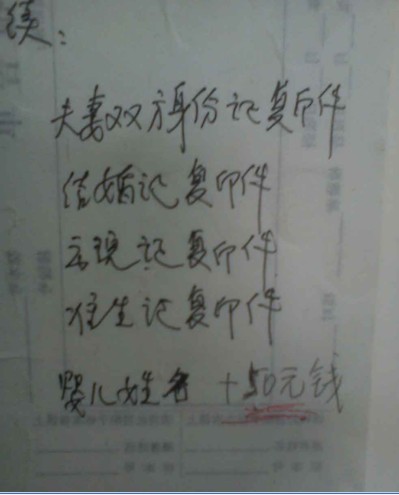 续:
夫妻双方身份记复印件
结婚记复印件
记复印件
准生记复印件
婴儿姓名 +50元钱